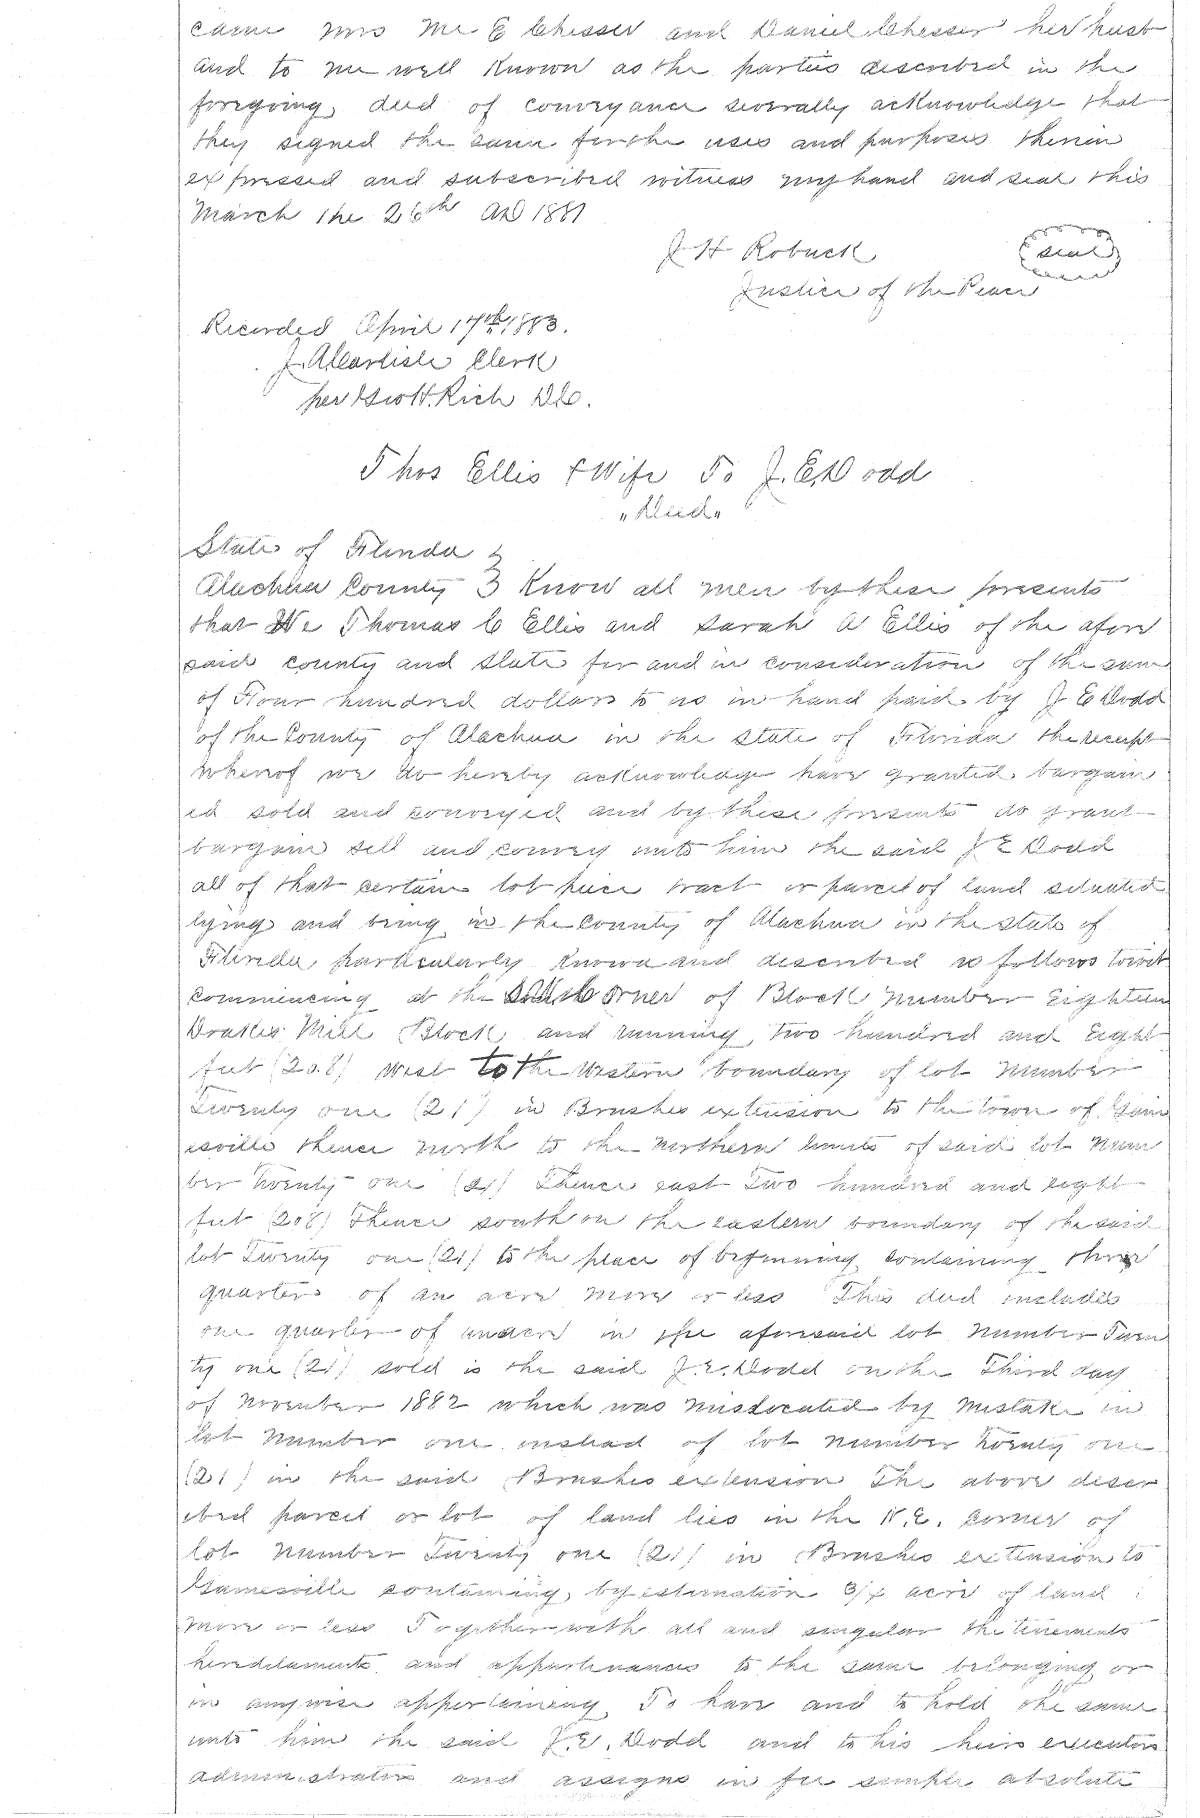 came Mrs Mc E Chesser and Daniel Chesser her husb
and to me well Known as the parties described in the
foregoing deed of conveyance severally acknowledge that
they signed the same for the uses and purposes therein
expressed and subscribed witness my hand and seal this
March the 26th AD 1881
J H Robuck
seal
Justice of the Peace
Recorded April 17th 1883.
J. A Carlisle Clerk
per Geo H. Rich D.C.
Thos Ellis & Wife To J. E. Dodd
"Deed"
State of Florida }
Alachua County } Know all men by these presents
that We Thomas C Ellis and Sarah A Ellis of the afore
said county and state for and in consideration of the sum
of Four hundred dollars to us in hand paid by J E Dodd
of the County of Alachua in the state of Florida the receipt
whereof we do hereby acknowledge have granted bargain
ed sold and conveyed and by these presents do grant
bargain sell and convey unto him the said J E Dodd
all of that certain lot piece tract or parcel of land situated
lying and being in the County of Alachua in the state of
Florida particularly known and described as follows towit
Commencing at the corner of Block Number Eighteen
Drakes Mill Block and running two hundred and Eight
feet (208) west to the Western boundary of lot Number
Twenty one (21) in Brushes extension to the town of Gain
esville thence north to the Northern limits of said lot Num
ber twenty one (21) Thence east Two hundred and eight
feet (208) Thence south on the eastern boundary of the said
lot Twenty one (21) to the place of beginning containing three
quarters of an acre more or less This deed includes
one quarter of an acre in the aforesaid lot Number Twen
ty one (21) sold is the said J. E. Dodd on the Third day
of November 1882 which was mislocated by mistake in
lot Number one instead of lot number twenty one
(21) in the said Brushes extension The above descr
ibed parcel or lot of land lies in the N.E. Corner of
lot Number Twenty one (21) in Brushes extension to
Gainesville containing by estimation 3/4 acre of land
more or less Together with all and singular the tenements
hereditaments and appurtenances to the same belonging or
in anywise appertaining To have and to hold the same
unto him the said J. E. Dodd and to his heirs executors
administrators and assigns in fee simple absolute